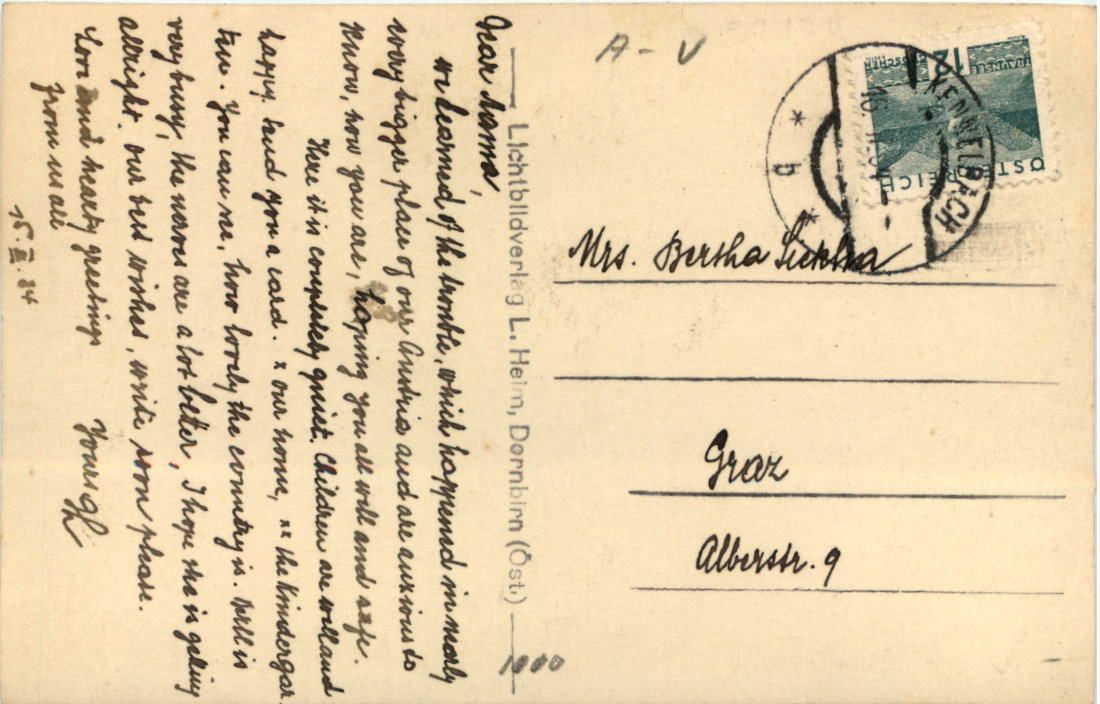 Dear Mama,
we learned of the trouble, which happened in nearly
every bigger place of our Austria and are anxious to
know, how you are, hoping you all well and safe.
Here it is completely quiet. Children are well and
happy. Send you a card. x our home, xx the Kindergar
ten. You can see, how lovely the country is. Nell is
very busy, the nerves are a lot better, I hope she is getting
allright. Our best wishes, write soon please.
Love and hearty greetings
from us all
Yours
15. II. 34
Lichtbildverlag L. Heim, Dornbirn (Öst.)
A - V
12
ÖSTERREICH
b
Mrs. Bertha
Graz
Alberstr. 9
1000